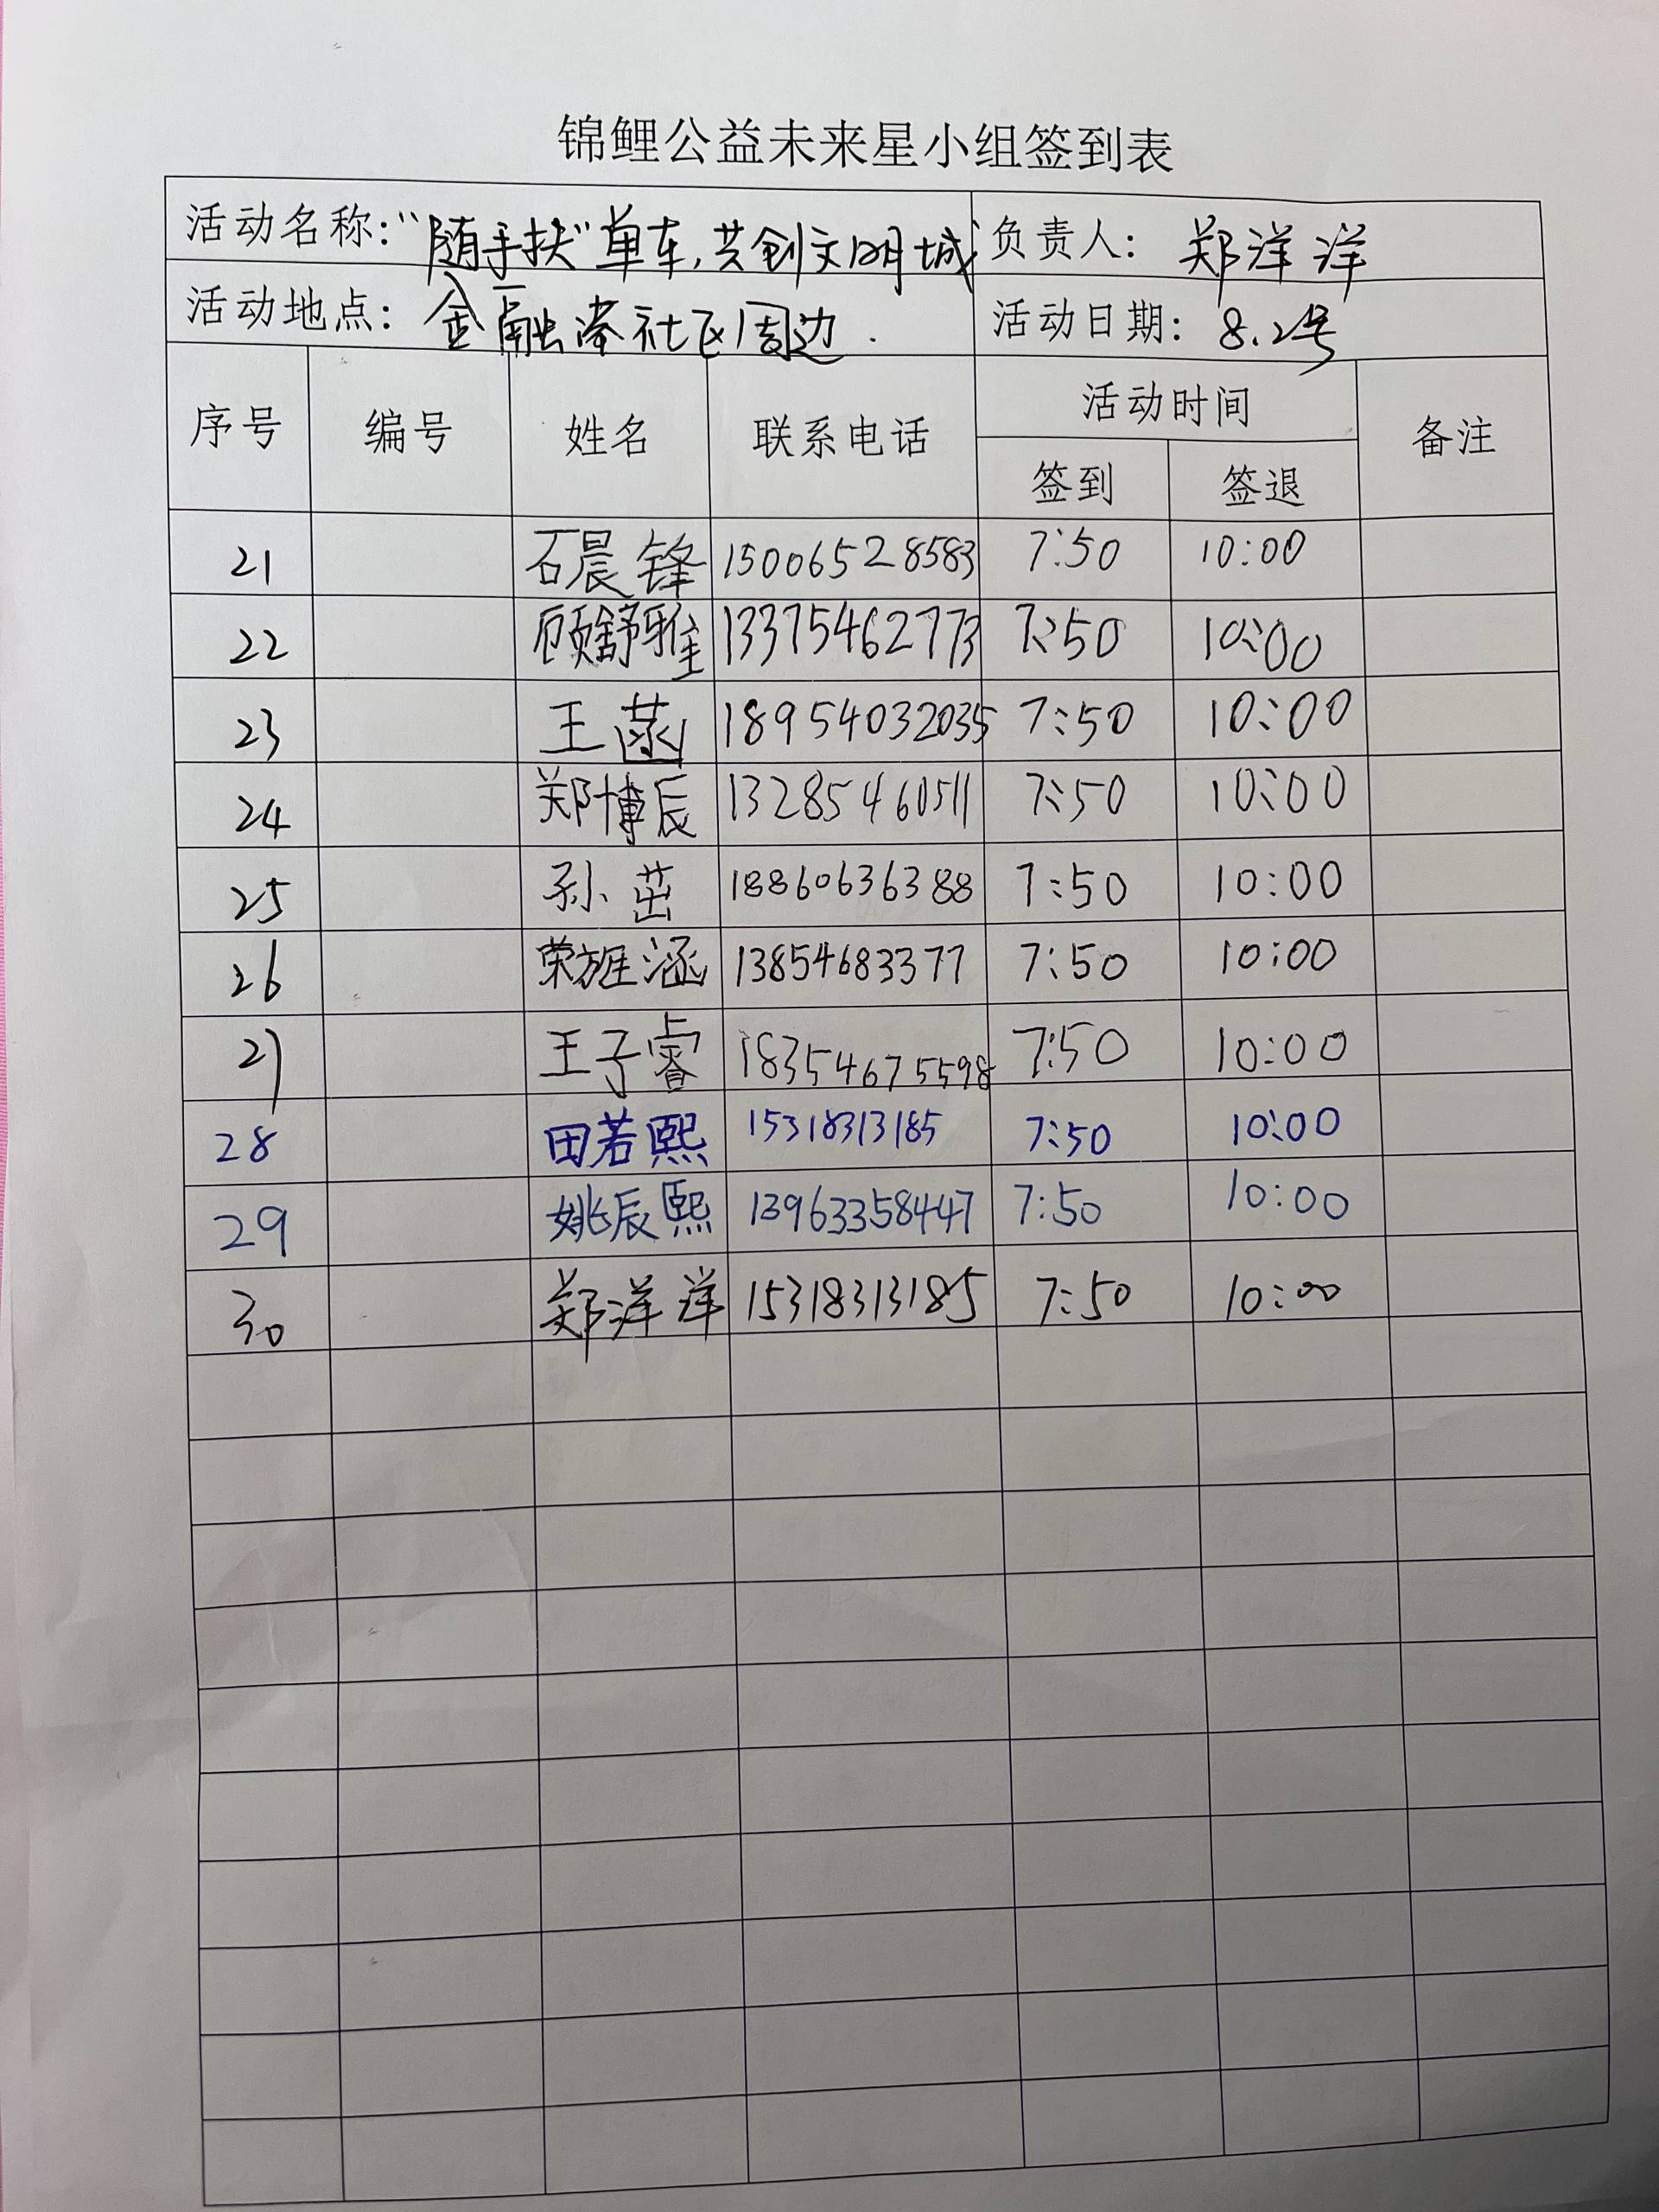 锦鲤公益未来星小组签到表
活动名称:“随手扶”单车,共创文明城 负责人: 郑洋洋
活动地点: 金融港社区周边. 活动日期: 8.2号
序号 编号 姓名 联系电话 活动时间 备注
签到 签退
21 石晨锋 15006528583 7:50 10:00
22 顾舒雅 13375462773 7:50 10:00
23 王菡 18954032035 7:50 10:00
24 郑博辰 13285460511 7:50 10:00
25 孙茁 18860636388 7:50 10:00
26 荣旌涵 13854683377 7:50 10:00
27 王子睿 18354675598 7:50 10:00
28 田若熙 15318313185 7:50 10:00
29 姚辰熙 13963358447 7:50 10:00
30 郑洋洋 15318313185 7:50 10:00